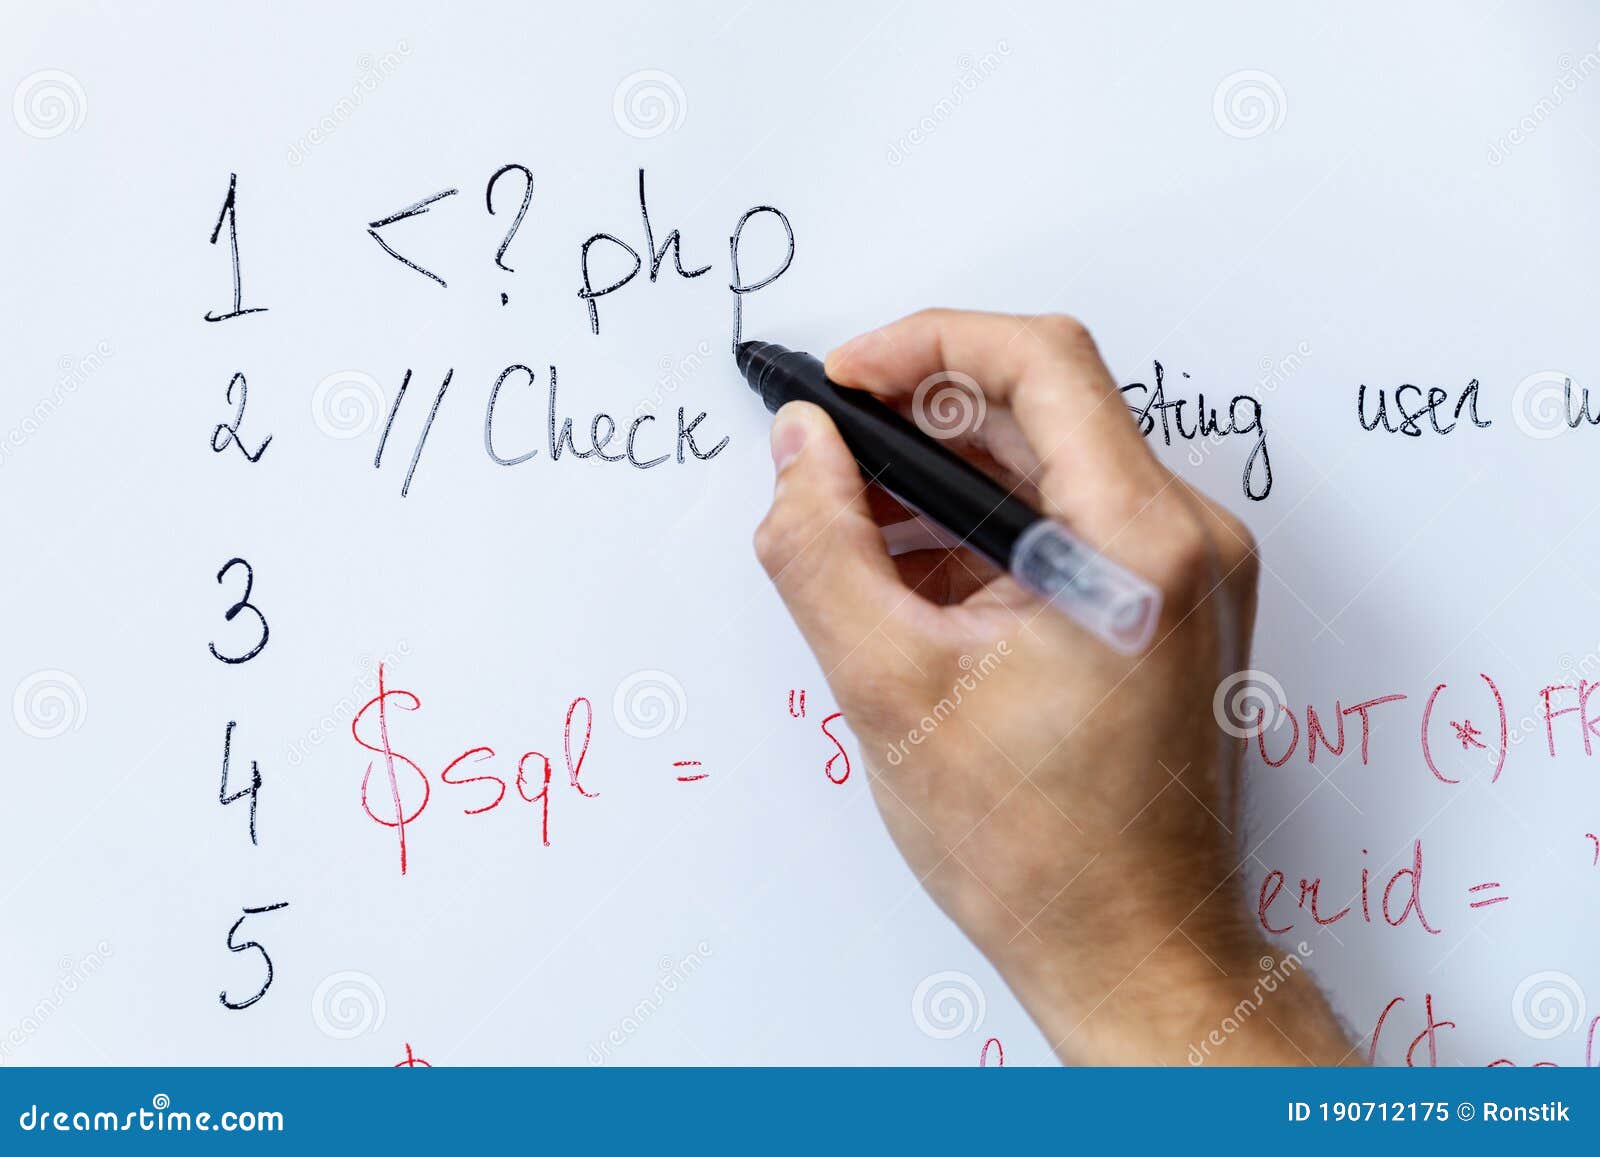 1 <?php
2 // Check sting user
3
4 $sql = " ONT (*) FR
erid = "
5
($sql
dreamstime.com
ID 190712175 © Ronstik